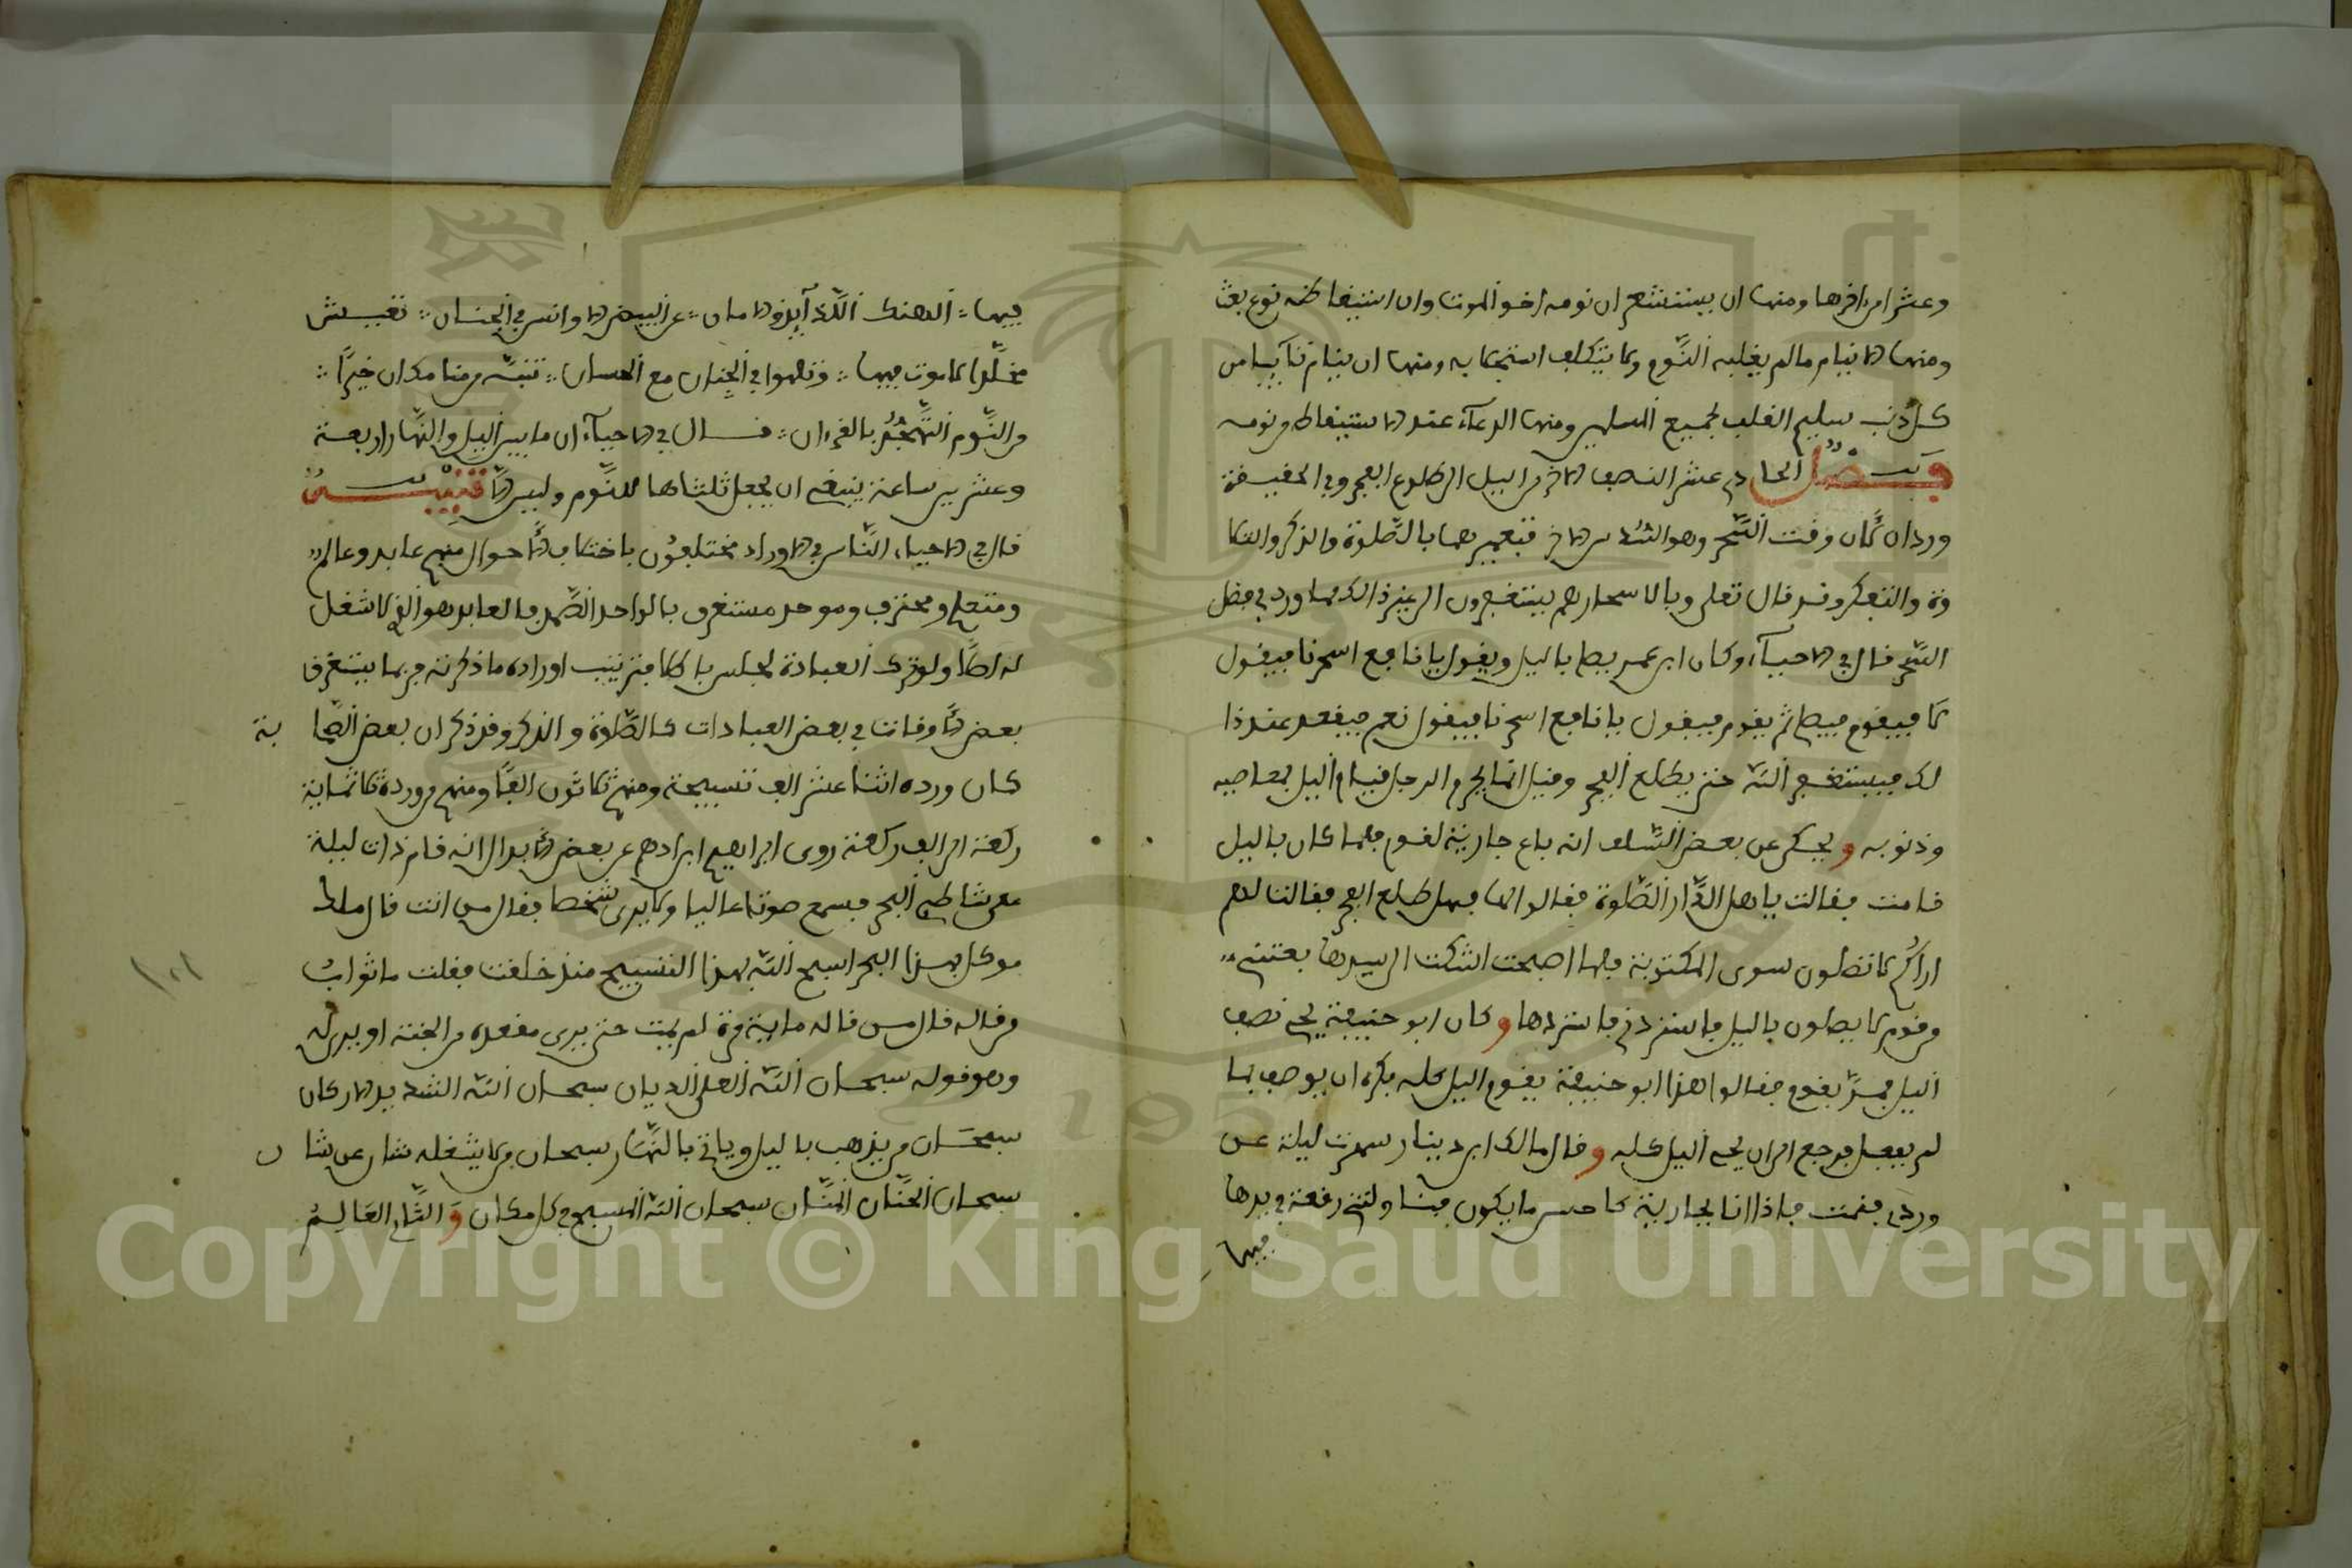 وعشرا من اخرها ومنها ان يستشعر ان نومه اخو الموت وان استيقاظه نوع بعث
ومنها الا ينام ما لم يغلبه النوم ولا يتكلف استجلابه ومنها ان ينام تائبا من
كل ذنب سليم القلب لجميع المسلمين ومنها الدعاء عند الاستيقاظ من نومه
فصل الحادي عشر النصف الاخر من اليل الى طلوع الفجر وفي الحقيقة
وردان لان وقت السحر وهو السدس الاخر فتعميرهما بالصلوة والذكر والتلا
وة والتفكر وقد قال تعلى وبالاسحار هم يستغفرون الى غير ذالك مما ورد في فضل
السحر قال في الاحياء وكان ابن عمر يصل باليل ويقول يا نافع اسحرنا فيقول
لا فيقوم فيصل ثم يقوم فيقول يا نافع اسحرنا فيقول نعم فيقعد عند ذا
لك فيستغفر الله حتى يطلع الفجر وقيل انما يحرم الرجل قيام اليل بمعاصيه
وذنوبه ويحكى عن بعض السلف انه باع جارية لقوم فلما كان باليل
قامت فقالت يا اهل الدار الصلوة فقالوا لها فهل طلع الفجر فقالت لهم
اراكم لا تصلون سوى المكتوبة فلما اصبحت اشتكت الى سيدها بعتني
من قوم لا يصلون باليل فاستردني فاستردها وكان ابو حنيفة يحي نصف
اليل فمر بقوم فقالوا هذا ابو حنيفة يقوم اليل كله فكره ان يوصف بما
لم يفعل فرجع الى ان يحي اليل كله وقال مالك ابن دينار سهرت ليلة عن
وردي فقمت فاذا انا بجارية كاحسن ما يكون منشا ولتني رقعة في يدها
فيها
فيها ∴ ألهتك اللذائذ والاماني ∴ عن البيض الاوانس في الجنان ∴ تعيش
مخلدا لا موت فيها ∴ وتلهوا في الجنان مع الحسان ∴ تنبه من منامك ان خيرا ∴
من النوم التهجد بالقران ∴ قال في الاحياء ان ما بين اليل والنهار اربعة
وعشرين ساعة ينبغي ان يجعل ثلثاها للنوم وليس الا تنبيه
قال في الاحياء الناس في الاوراد مختلفون باختلاف الاحوال منهم عابد وعالم
ومتعلم ومحترف وموحد مستغرق بالواحد الصمد فالعابد هو الذي لا شغل
له اصلا ولو ترك العبادة لجلس باطلا فترتيب اوراده ما ذكرته فربما يستغرق
بعض الاوقات في بعض العبادات كالصلوة والذكر وقد ذكر ان بعض الصحا بة
كان ورده اثنا عشر الف تسبيحة ومنهم ثلاثون الفا ومنهم من ورده ثلاثماية
ركعة الى الف ركعة روى ابراهيم ابن ادهم عن بعض الابدال انه قام ذات ليلة
على شاطئ البحر فسمع صوتا عاليا ولا يرى شخصا فقال من انت قال ملك
موكل بهذا البحر اسبح الله بهذا التسبيح منذ خلقت فقلت ما ثواب
من قاله قال من قاله ماية مرة لم يمت حتى يرى مقعده من الجنة او يرى له
وهو قوله سبحان الله العلي الديان سبحان الله الشديد الاركان
سبحان من يذهب باليل وياتي بالنهار سبحان من لا يشغله شان عن شا ن
سبحان الحنان المنان سبحان الله المسبح في كل مكان والثاني العالم